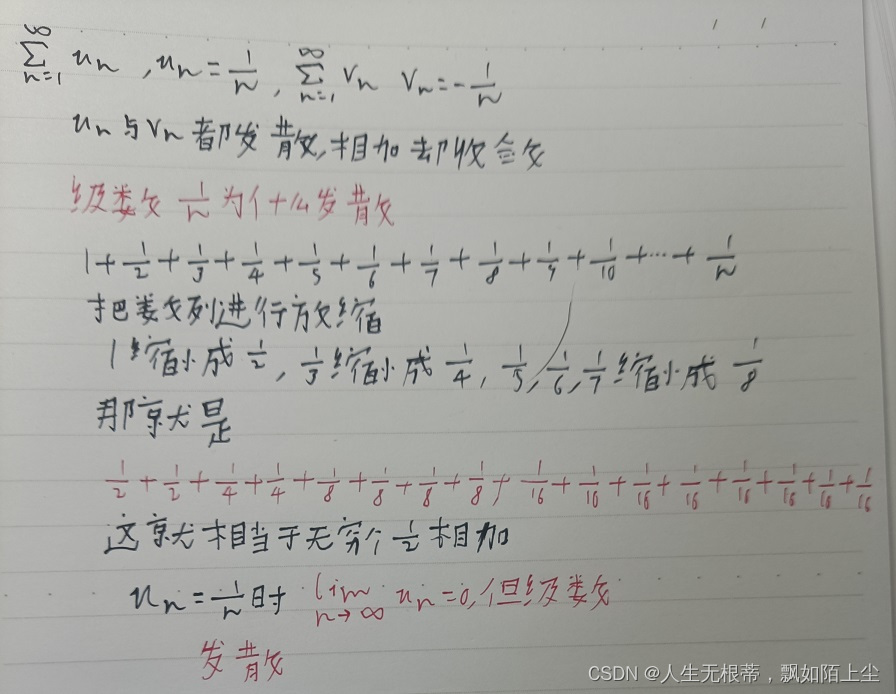 ∑_{n=1}^{∞} u_n , u_n = 1/n , ∑_{n=1}^{∞} v_n v_n = -1/n
u_n与v_n都发散,相加却收敛
级数 1/n 为什么发散
1 + 1/2 + 1/3 + 1/4 + 1/5 + 1/6 + 1/7 + 1/8 + 1/9 + 1/10 + ⋯ + 1/n
把数列进行放缩
1缩小成 1/2 , 1/3 缩小成 1/4 , 1/5 , 1/6 , 1/7 缩小成 1/8
那就是
1/2 + 1/2 + 1/4 + 1/4 + 1/8 + 1/8 + 1/8 + 1/8 + 1/16 + 1/16 + 1/16 + 1/16 + 1/16 + 1/16 + 1/16 + 1/16
这就相当于无穷个 1/2 相加
u_n = 1/n 时 lim_{n→∞} u_n = 0,但级数
发散
CSDN @人生无根蒂，飘如陌上尘